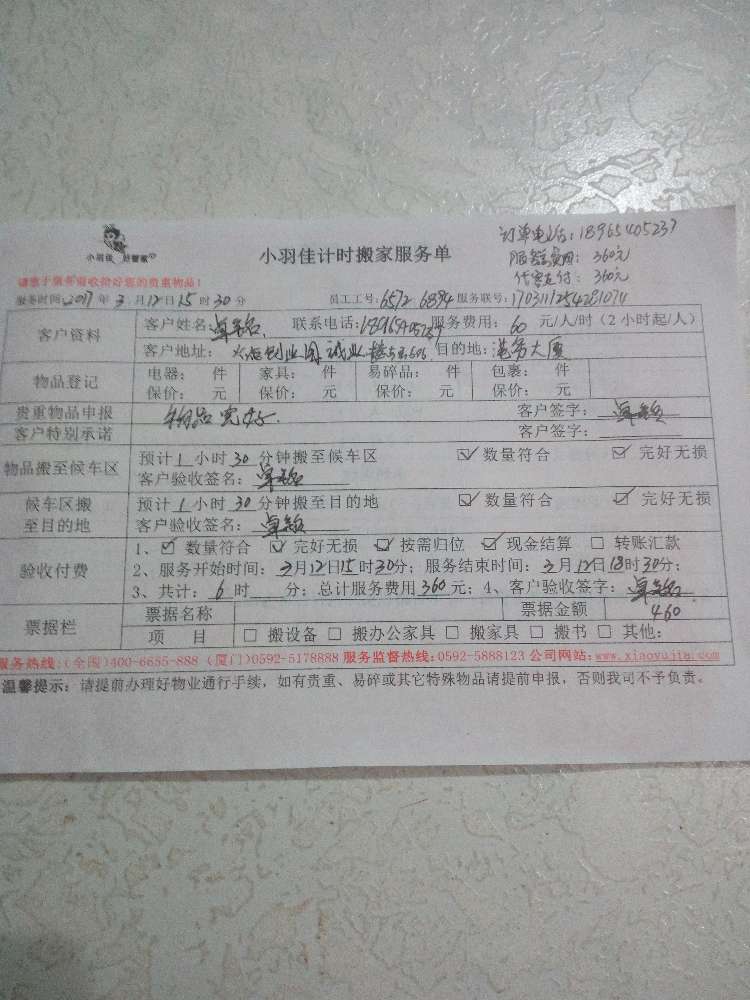 小羽佳 好管家
小羽佳计时搬家服务单
订单电话:18965405237
服务费用:360元
代客支付:360元
请您于服务前收拾好您的贵重物品!
服务时间:2017年3月12日15时30分 员工工号:6572 6894 服务联号:
客户资料 客户姓名: 联系电话: 服务费用:60元/人/时(2小时起/人)
客户地址: 目的地:港务大厦
物品登记 电器: 件 家具: 件 易碎品: 件 包裹: 件
保价: 元 保价: 元 保价: 元 保价: 元
贵重物品申报 物品完好. 客户签字:
客户特别承诺 客户签字:
物品搬至候车区 预计1小时30分钟搬至候车区 ☑数量符合 ☑完好无损
客户验收签名:
候车区搬至目的地 预计1小时30分钟搬至目的地 ☑数量符合 ☑完好无损
客户验收签名:
验收付费 1、☑数量符合 ☑完好无损 ☑按需归位 ☑现金结算 □转账汇款
2、服务开始时间:3月12日15时30分;服务结束时间:3月12日18时30分;
3、共计:6时 分;总计服务费用360元;4、客户验收签字:
票据栏 票据名称 票据金额 460
项 目 □搬设备 □搬办公家具 □搬家具 □搬书 □其他:
服务热线:(全国)400-6655-888 (厦门)0592-5178888 服务监督热线:0592-5888123 公司网站:www.xiaoyujia.com
温馨提示:请提前办理好物业通行手续,如有贵重、易碎或其它特殊物品请提前申报,否则我司不予负责。